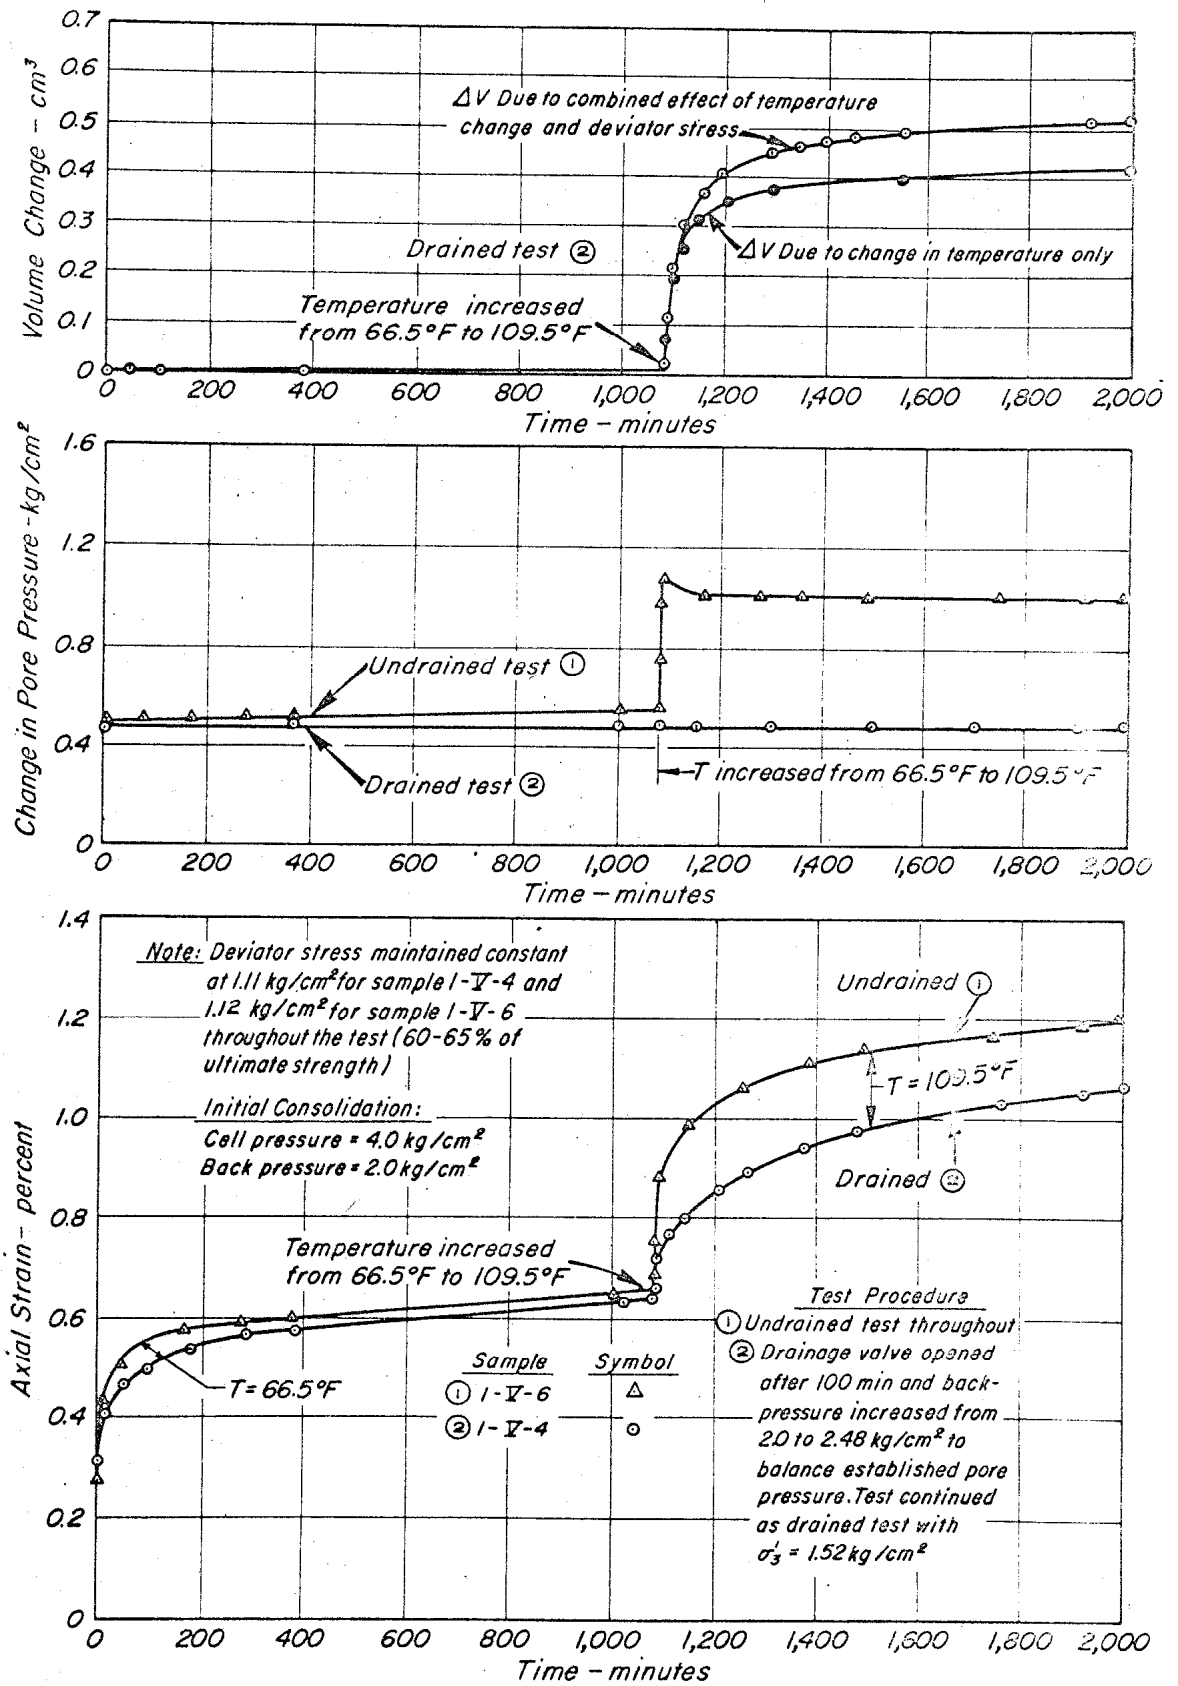 0.7
0.6
0.5
0.4
0.3
0.2
0.1
0
Volume Change - cm³
ΔV Due to combined effect of temperature
change and deviator stress
Drained test ②
ΔV Due to change in temperature only
Temperature increased
from 66.5°F to 109.5°F
0 200 400 600 800 1,000 1,200 1,400 1,600 1,800 2,000
Time - minutes
1.6
1.2
0.8
0.4
0
Change in Pore Pressure - kg/cm²
Undrained test ①
Drained test ②
T increased from 66.5°F to 109.5°F
0 200 400 600 800 1,000 1,200 1,400 1,600 1,800 2,000
Time - minutes
1.4
1.2
1.0
0.8
0.6
0.4
0.2
0
Axial Strain - percent
Note: Deviator stress maintained constant
at 1.11 kg/cm² for sample 1-V-4 and
1.12 kg/cm² for sample 1-V-6
throughout the test (60-65% of
ultimate strength)
Initial Consolidation:
Cell pressure = 4.0 kg/cm²
Back pressure = 2.0 kg/cm²
Undrained ①
T = 109.5°F
Drained ②
Temperature increased
from 66.5°F to 109.5°F
T = 66.5°F
Sample Symbol
① 1-V-6 △
② 1-V-4 ⊙
Test Procedure
① Undrained test throughout
② Drainage valve opened
after 100 min and back-
pressure increased from
2.0 to 2.48 kg/cm² to
balance established pore
pressure. Test continued
as drained test with
σ₃' = 1.52 kg/cm²
0 200 400 600 800 1,000 1,200 1,400 1,600 1,800 2,000
Time - minutes